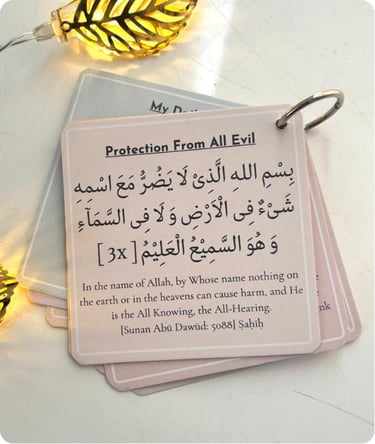 My
Protection From All Evil
بِسْمِ اللهِ الَّذِىْ لَا يَضُرُّ مَعَ اسْمِهِ
شَىْءٌ فِى الْاَرْضِ وَ لَا فِى السَّمَآءِ
وَ هُوَ السَّمِيْعُ الْعَلِيْمُ [3x]
In the name of Allah, by Whose name nothing on
the earth or in the heavens can cause harm, and He
is the All Knowing, the All-Hearing.
[Sunan Abū Dawūd: 5088] Ṣaḥīḥ